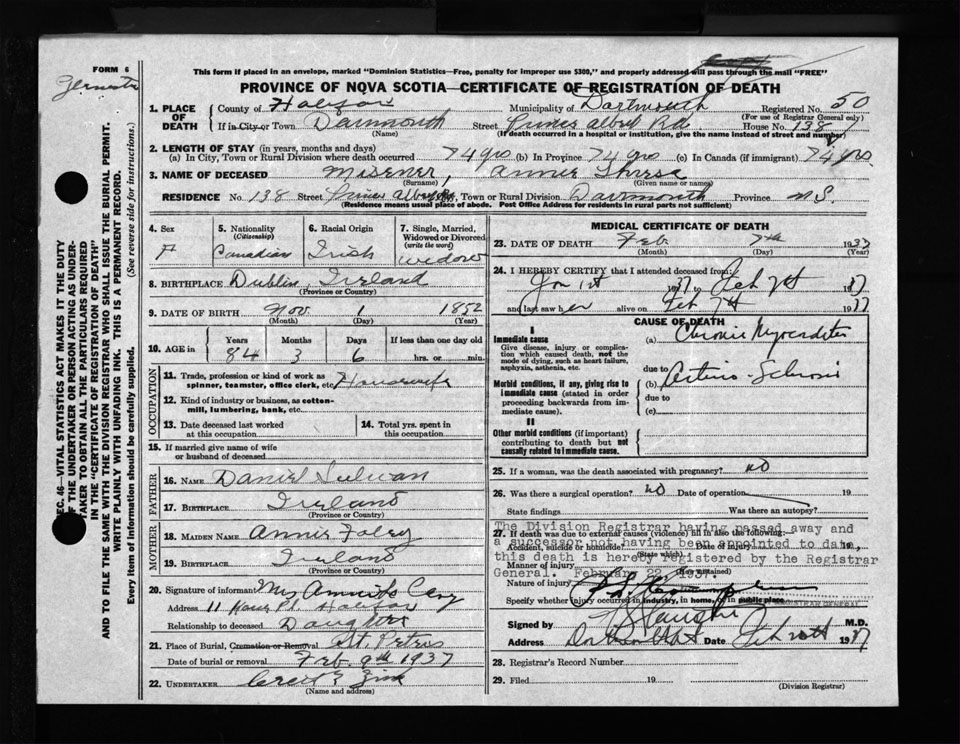 FORM 6
This form if placed in an envelope, marked "Dominion Statistics—Free, penalty for improper use $300," and properly addressed will pass through the mail "FREE"
PROVINCE OF NOVA SCOTIA—CERTIFICATE OF REGISTRATION OF DEATH
SEC. 46—VITAL STATISTICS ACT MAKES IT THE DUTY
OF THE UNDERTAKER OR PERSON ACTING AS UNDER-
TAKER TO OBTAIN ALL THE PARTICULARS REQUIRED
IN THE "CERTIFICATE OF REGISTRATION OF DEATH"
AND TO FILE THE SAME WITH THE DIVISION REGISTRAR WHO SHALL ISSUE THE BURIAL PERMIT.
WRITE PLAINLY WITH UNFADING INK. THIS IS A PERMANENT RECORD.
Every item of information should be carefully supplied. (See reverse side for instructions.)
1. PLACE OF DEATH
County of Halifax Municipality of Dartmouth Registered No. 50
(For use of Registrar General only)
If in City or Town Dartmouth Street Prince Albert Rd. House No. 138
(Name) (If death occurred in a hospital or institution, give the name instead of street and number)
2. LENGTH OF STAY (in years, months and days)
(a) In City, Town or Rural Division where death occurred 74 yrs (b) In Province 74 yrs (c) In Canada (if immigrant) 74 yrs.
3. NAME OF DECEASED Misener, Annie
(Surname) (Given name or names)
RESIDENCE No. 138 Street Prince Albert Rd City, Town or Rural Division Dartmouth Province N S.
(Residence means usual place of abode. Post Office Address for residents in rural parts not sufficient)
4. Sex
F
5. Nationality
(Citizenship)
Canadian
6. Racial Origin
Irish
7. Single, Married,
Widowed or Divorced
(write the word)
widow
8. BIRTHPLACE Dublin, Ireland
(Province or Country)
9. DATE OF BIRTH Nov. 1 1852
(Month) (Day) (Year)
10. AGE in Years Months Days If less than one day old
84 3 6 hrs. or min.
OCCUPATION
11. Trade, profession or kind of work as
spinner, teamster, office clerk, etc. Housewife
12. Kind of industry or business, as cotton-
mill, lumbering, bank, etc.
13. Date deceased last worked
at this occupation
14. Total yrs. spent in
this occupation
15. If married give name of wife
or husband of deceased
FATHER
16. NAME Daniel
17. BIRTHPLACE Ireland
(Province or Country)
MOTHER
18. MAIDEN NAME Annie Foley
19. BIRTHPLACE Ireland
(Province or Country)
20. Signature of informant Mrs
Address 11 Halifax
Relationship to deceased Daughter
21. Place of Burial, Cremation or Removal St. Peters
Date of burial or removal Feb. 9th 1937
22. UNDERTAKER
(Name and address)
MEDICAL CERTIFICATE OF DEATH
23. DATE OF DEATH Feb 7th 1937
(Month) (Day) (Year)
24. I HEREBY CERTIFY that I attended deceased from:
Jan 1st 1937 to Feb 7th 1937
and last saw her alive on Feb 7th 1937
CAUSE OF DEATH
I
Immediate cause
Give disease, injury or complica-
tion which caused death, not the
mode of dying, such as heart failure,
asphyxia, asthenia, etc.
(a) Chronic Myocarditis
due to
Morbid conditions, if any, giving rise to
immediate cause (stated in order
proceeding backwards from im-
mediate cause).
(b)
due to
(c)
II
Other morbid conditions (if important)
contributing to death but not
causally related to immediate cause.
25. If a woman, was the death associated with pregnancy? no
26. Was there a surgical operation? no Date of operation 19
State findings Was there an autopsy?
27. If death was due to external causes (violence) fill in also the following:—
Accident, suicide or homicide Date of injury 19
(State which)
Manner of injury
Nature of injury
Specify whether injury occurred in industry, in home, or in public place
The Division Registrar having passed away and
a successor not having been appointed to date,
this death is hereby registered by the Registrar
General. February 22 1937.
REGISTRAR GENERAL
Signed by M.D.
Address Date 19
28. Registrar's Record Number
29. Filed 19
(Division Registrar)